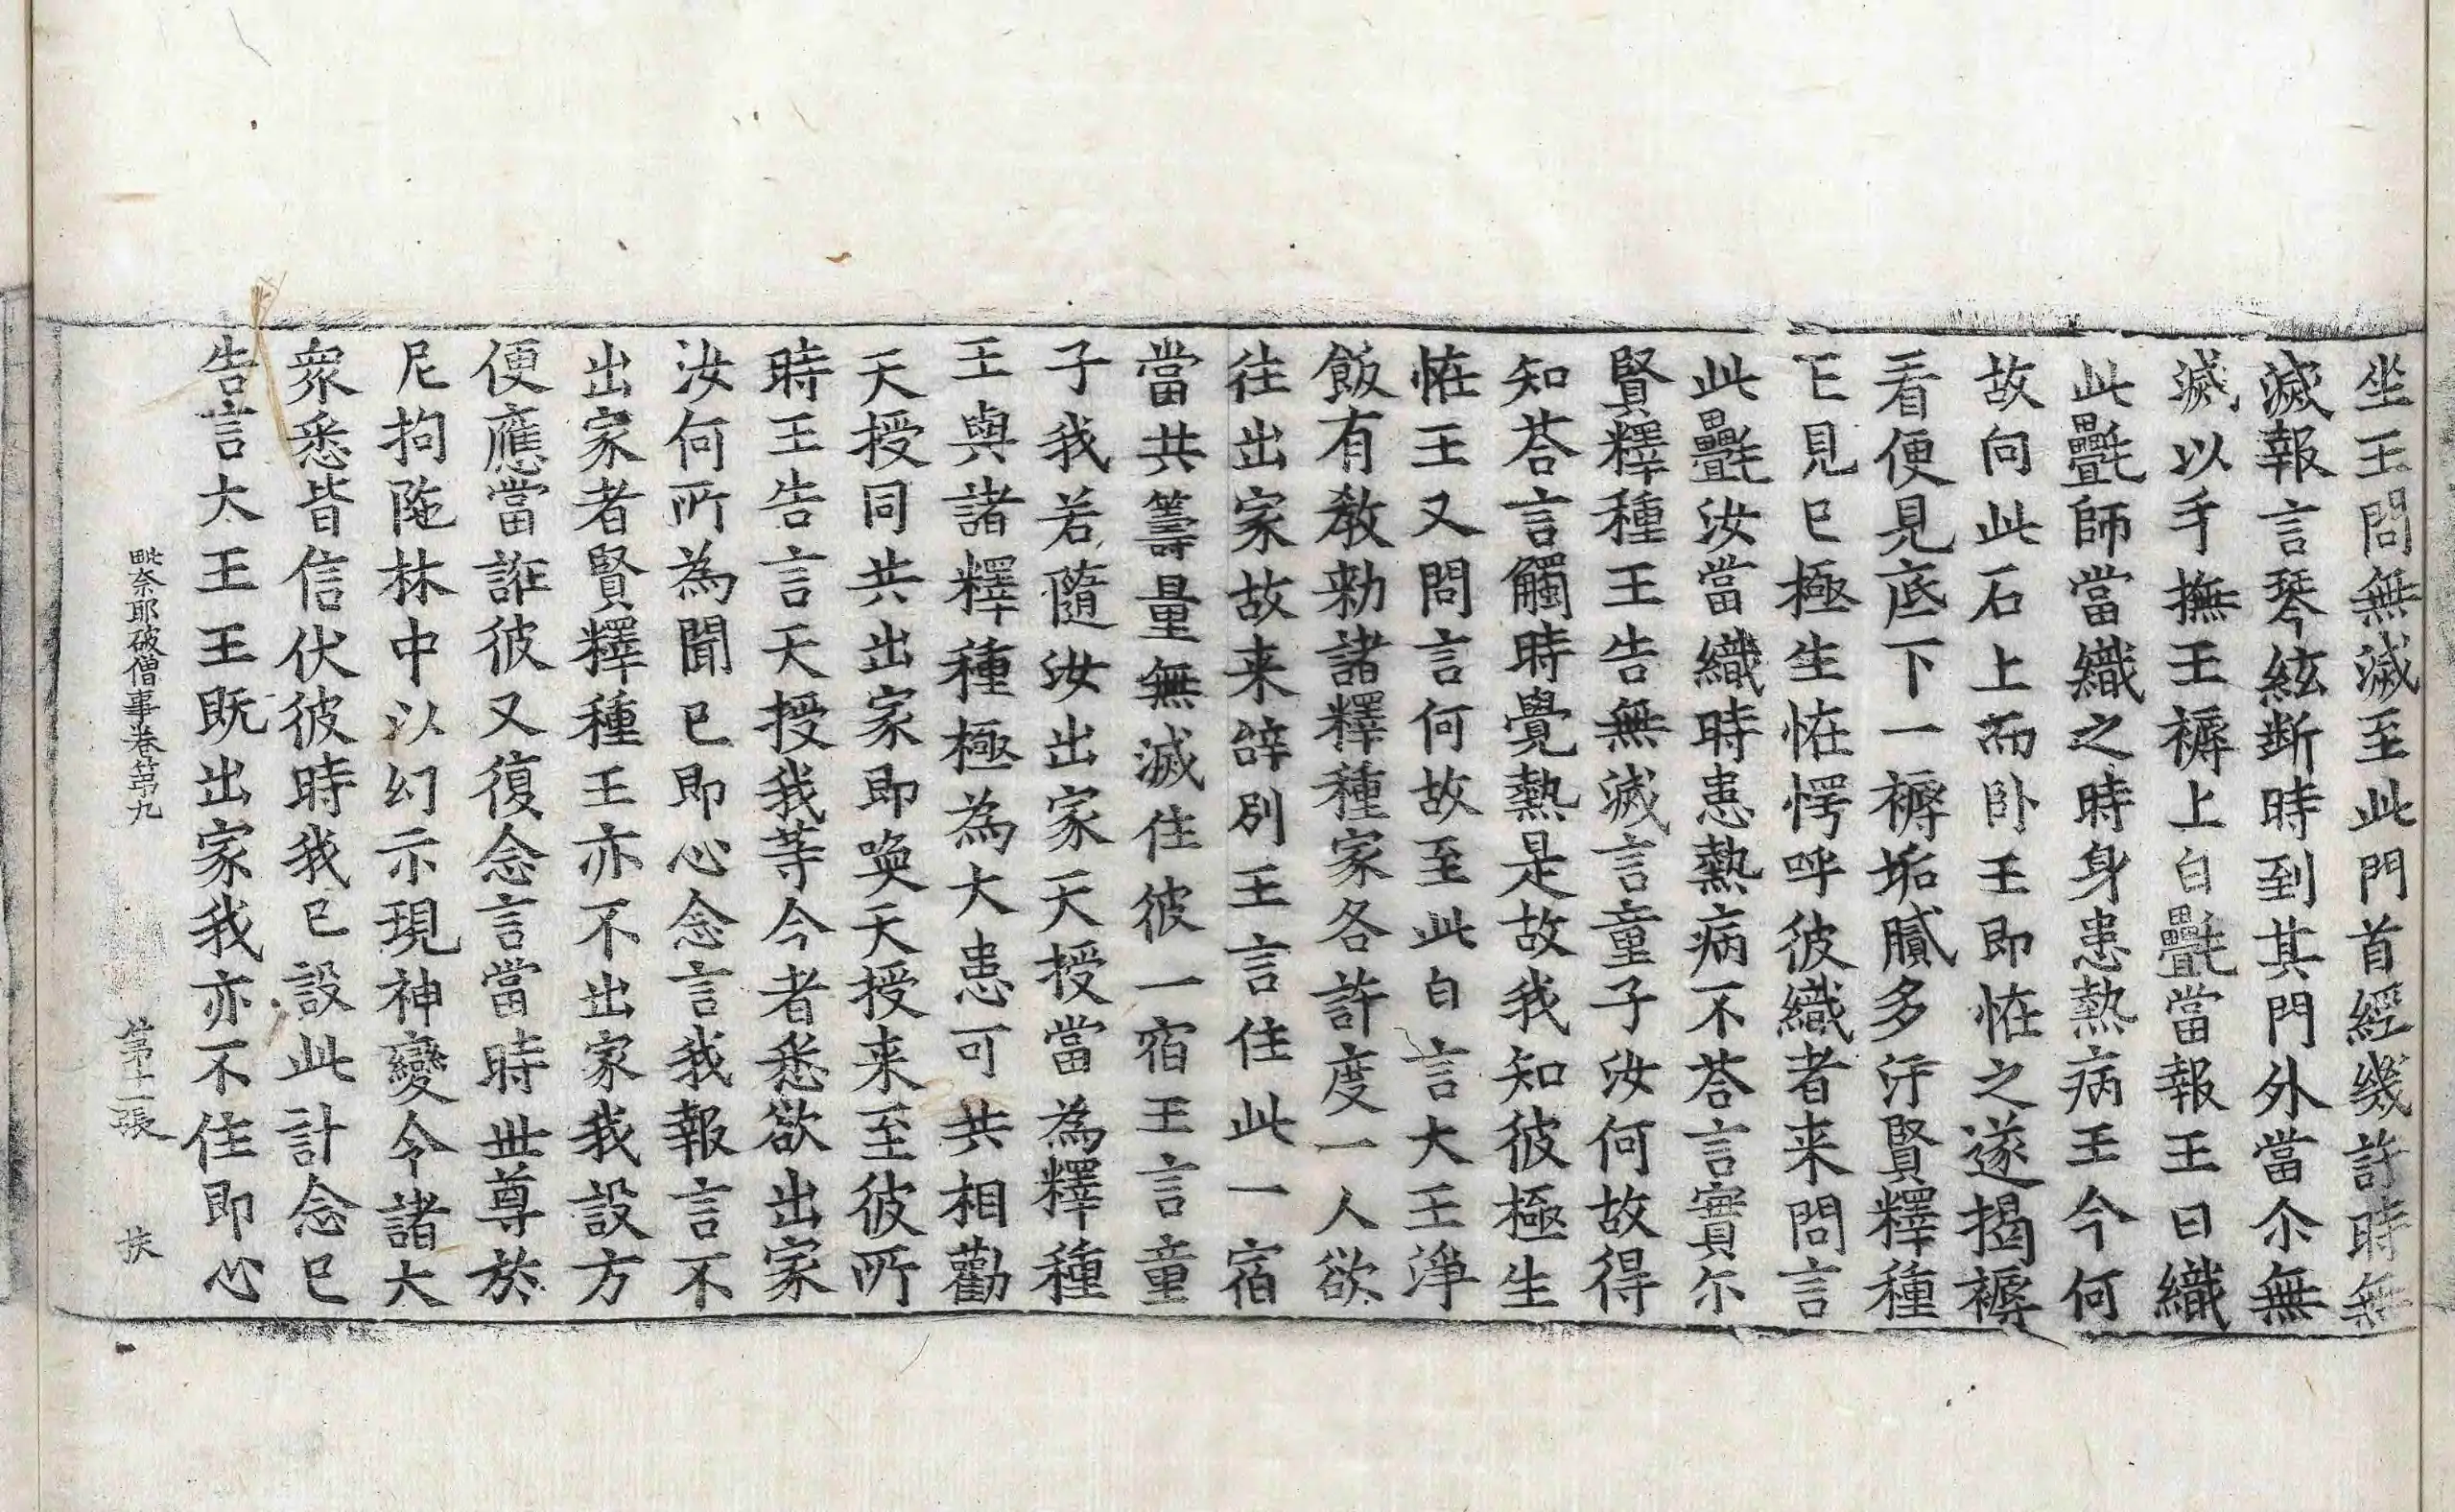 坐王問無滅至此門首經幾許時無
滅報言琴絃斷時到其門外當尒無
滅以手撫王褥上白㲲當報王曰織
此㲲師當織之時身患熱病王今何
故向此石上而卧王即恠之遂揭褥
看便見底下一褥垢膩多汙賢釋種
王見已極生恠愕呼彼織者来問言
此㲲汝當織時患熱病不荅言實尓
賢釋種王告無滅言童子汝何故得
知荅言觸時覺熱是故我知彼極生
恠王又問言何故至此白言大王淨
飯有教勑諸釋種家各許度一人欲
往出家故来辝别王言住此一宿
當共籌量無滅住彼一宿王言童
子我若隨汝出家天授當為釋種
王與諸釋種極為大患可共相勸
天授同共出家即喚天授来至彼所
時王告言天授我等今者悉欲出家
汝何所為聞已即心念言我報言不
出家者賢釋種王亦不出家我設方
便應當誑彼又復念言當時世尊於
尼拘陁林中以幻示現神變令諸大
衆悉皆信伏彼時我已設此計念已
告言大王王既出家我亦不住即心
毗奈耶破僧事卷第九 第十二張 扶